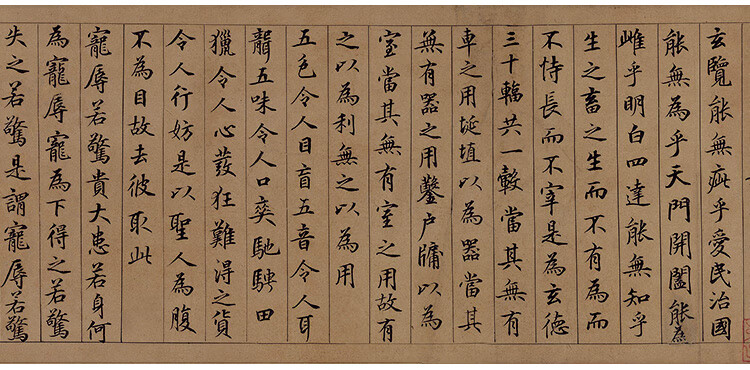 玄覽能無疵乎愛民治國
能無為乎天門開闔能為
雌乎明白四達能無知乎
生之畜之生而不有為而
不恃長而不宰是為玄德
三十輻共一轂當其無有
車之用埏埴以為器當其
無有器之用鑿户牖以為
室當其無有室之用故有
之以為利無之以為用
五色令人目盲五音令人耳
聾五味令人口爽馳騁田
獵令人心發狂難得之貨
令人行妨是以聖人為腹
不為目故去彼取此
寵辱若驚貴大患若身何
為寵辱寵為下得之若驚
失之若驚是謂寵辱若驚